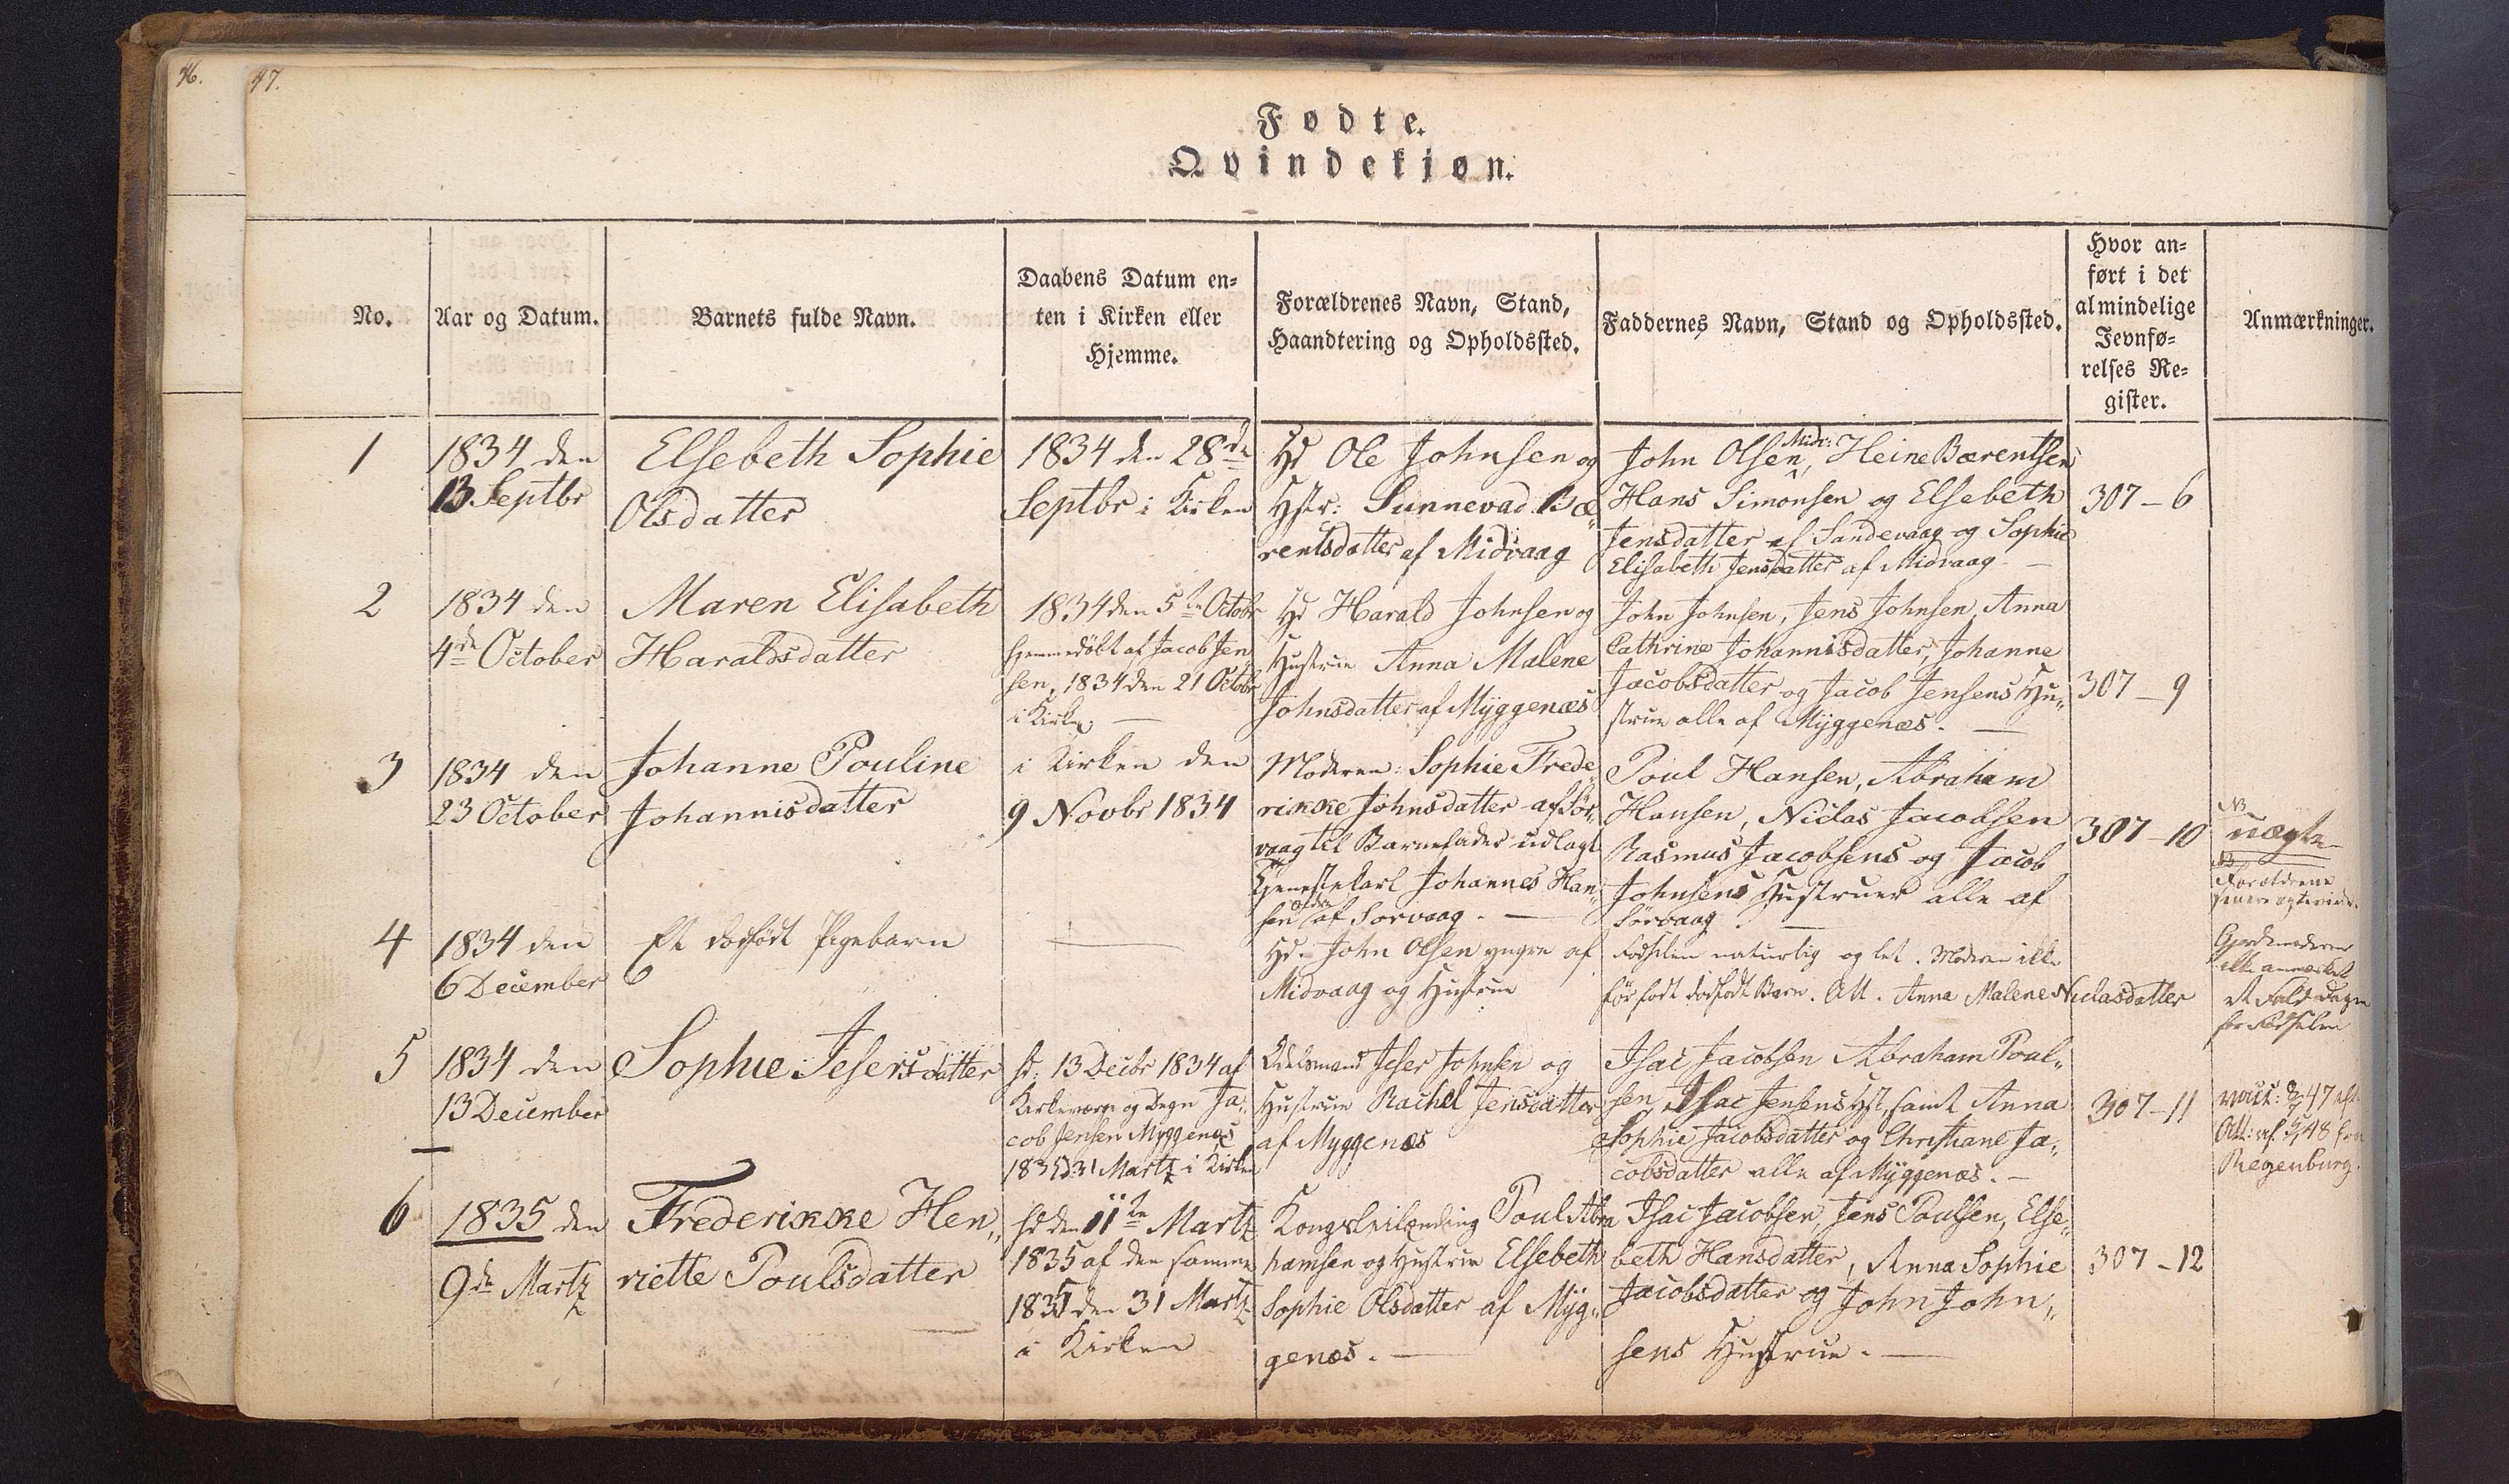 46.
47.
Fødte.
Qvindekjøn.
No.
Aar og Datum.
Barnets fulde Navn.
Daabens Datum en=
ten i Kirken eller
Hjemme.
Forældrenes Navn, Stand,
Haandtering og Opholdssted.
Faddernes Navn, Stand og Opholdssted.
Hvor an=
ført i det
almindelige
Jevnfø=
relses Re=
gister.
Anmærkninger.
1
1834 den
13 Septbr
Elsebeth Sophie
Olsdatter
1834 den 28de
Septbr i Kirken
Hd Ole Johnsen og
Hstr: Sunnevad. Bæ„
rentsdatter af Midvaag
Midv:
John Olsen, Heine Bærentsen
Hans Simonsen og Elsebeth
Jensdatter af Sandevaag og Sophie
Elisabeth Jensdatter af Midvaag
307 – 6
2
1834 den
4de October
Maren Elisabeth
Haraldsdatter
1834 den 5te Octobr
hjemmedöbt af Jacob Jen
sen, 1834 den 21 Octobr
i Kirken
Hd Harald Johnsen og
Hustrue Anna Malene
Johnsdatter af Myggenæs
John Johnsen, Jens Johnsen, Anna
Cathrine Johannisdatter, Johanne
Jacobsdatter og Jacob Jensens Hu„
strue alle af Myggenæs. —
307 – 9
3
1834 den
23 October
Johanne Pouline
Johannisdatter
i Kirken den
9 Novbr 1834
Moderen: Sophie Frede„
rikke Johnsdatter af Sør„
vaag til Barnefader udlagt
Tjenestekarl Johannes Han„
sen af Sørvaag. —
Poul Hansen, Abraham
Hansen, Niclas Jacobsen
Rasmus Jacobsens og Jacob
Johnsens Hustruer alle af
Sørvaag. —
307 – 10
NB
uægte
NB
Forældrene
senere
4
1834 den
6 December
Et dödfödt Pigebarn
Hd. John Olsen yngre af
Midvaag og Hustrue
Födselen naturlig og let. Moderen ikke
för födt dödfödt Barn. Att. Anna Malene Niclasdatter
Gjordemoderen
ikke anmærket
et Fald Dagen
for Födselen
5
1834 den
13 December
Sophie Jesersdatter
hd: 13 Decbr 1834 af
Kirkeværge og Degn Ja„
cob Jensen Myggenæs
1835 D 31 Martz i Kirken
Odelsmand Jeser Johnsen og
Hustrue Rachel Jensdatter
af Myggenæs
Isac Jacobsen Abraham Poul„
sen, Isac Jensens Hst, samt Anna
Sophie Jacobsdatter og Christiane Ja„
cobsdatter alle af Myggenæs. —
307 – 11
Att: af
Regenburg.
6
1835 den
9de Martz
Frederikke Hen„
riette Poulsdatter
hd den 11te Martz
1835 af den samme
1835 den 31 Martz
i Kirken
Kongsleilending Poul Abra
hamsen og Hustrue Elsebeth
Sophie Olsdatter af Myg„
genæs. —
Isac Jacobsen, Jens Poulsen, Else„
beth Hansdatter, Anna Sophie
Jacobsdatter og John John„
sens Hustrue. —
307 – 12